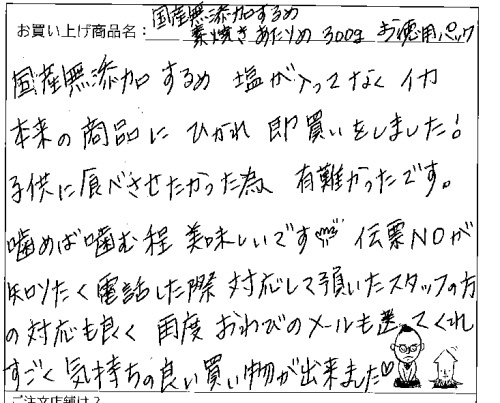 国産無添加するめ
お買い上げ商品名：素焼きあたりめ 300g お徳用パック
国産無添加 するめ 塩が入ってなく イカ
本来の商品に ひかれ 即買いをしました!
子供に食べさせたかった為 有難かったです。
噛めば噛む程 美味しいです 伝票NOが
知りたく電話した際 対応して頂いたスタッフの方
の対応も良く 再度 おわびのメールも送ってくれ
すごく気持ちの良い買い物が出来ました♡
ご注文店舗は？